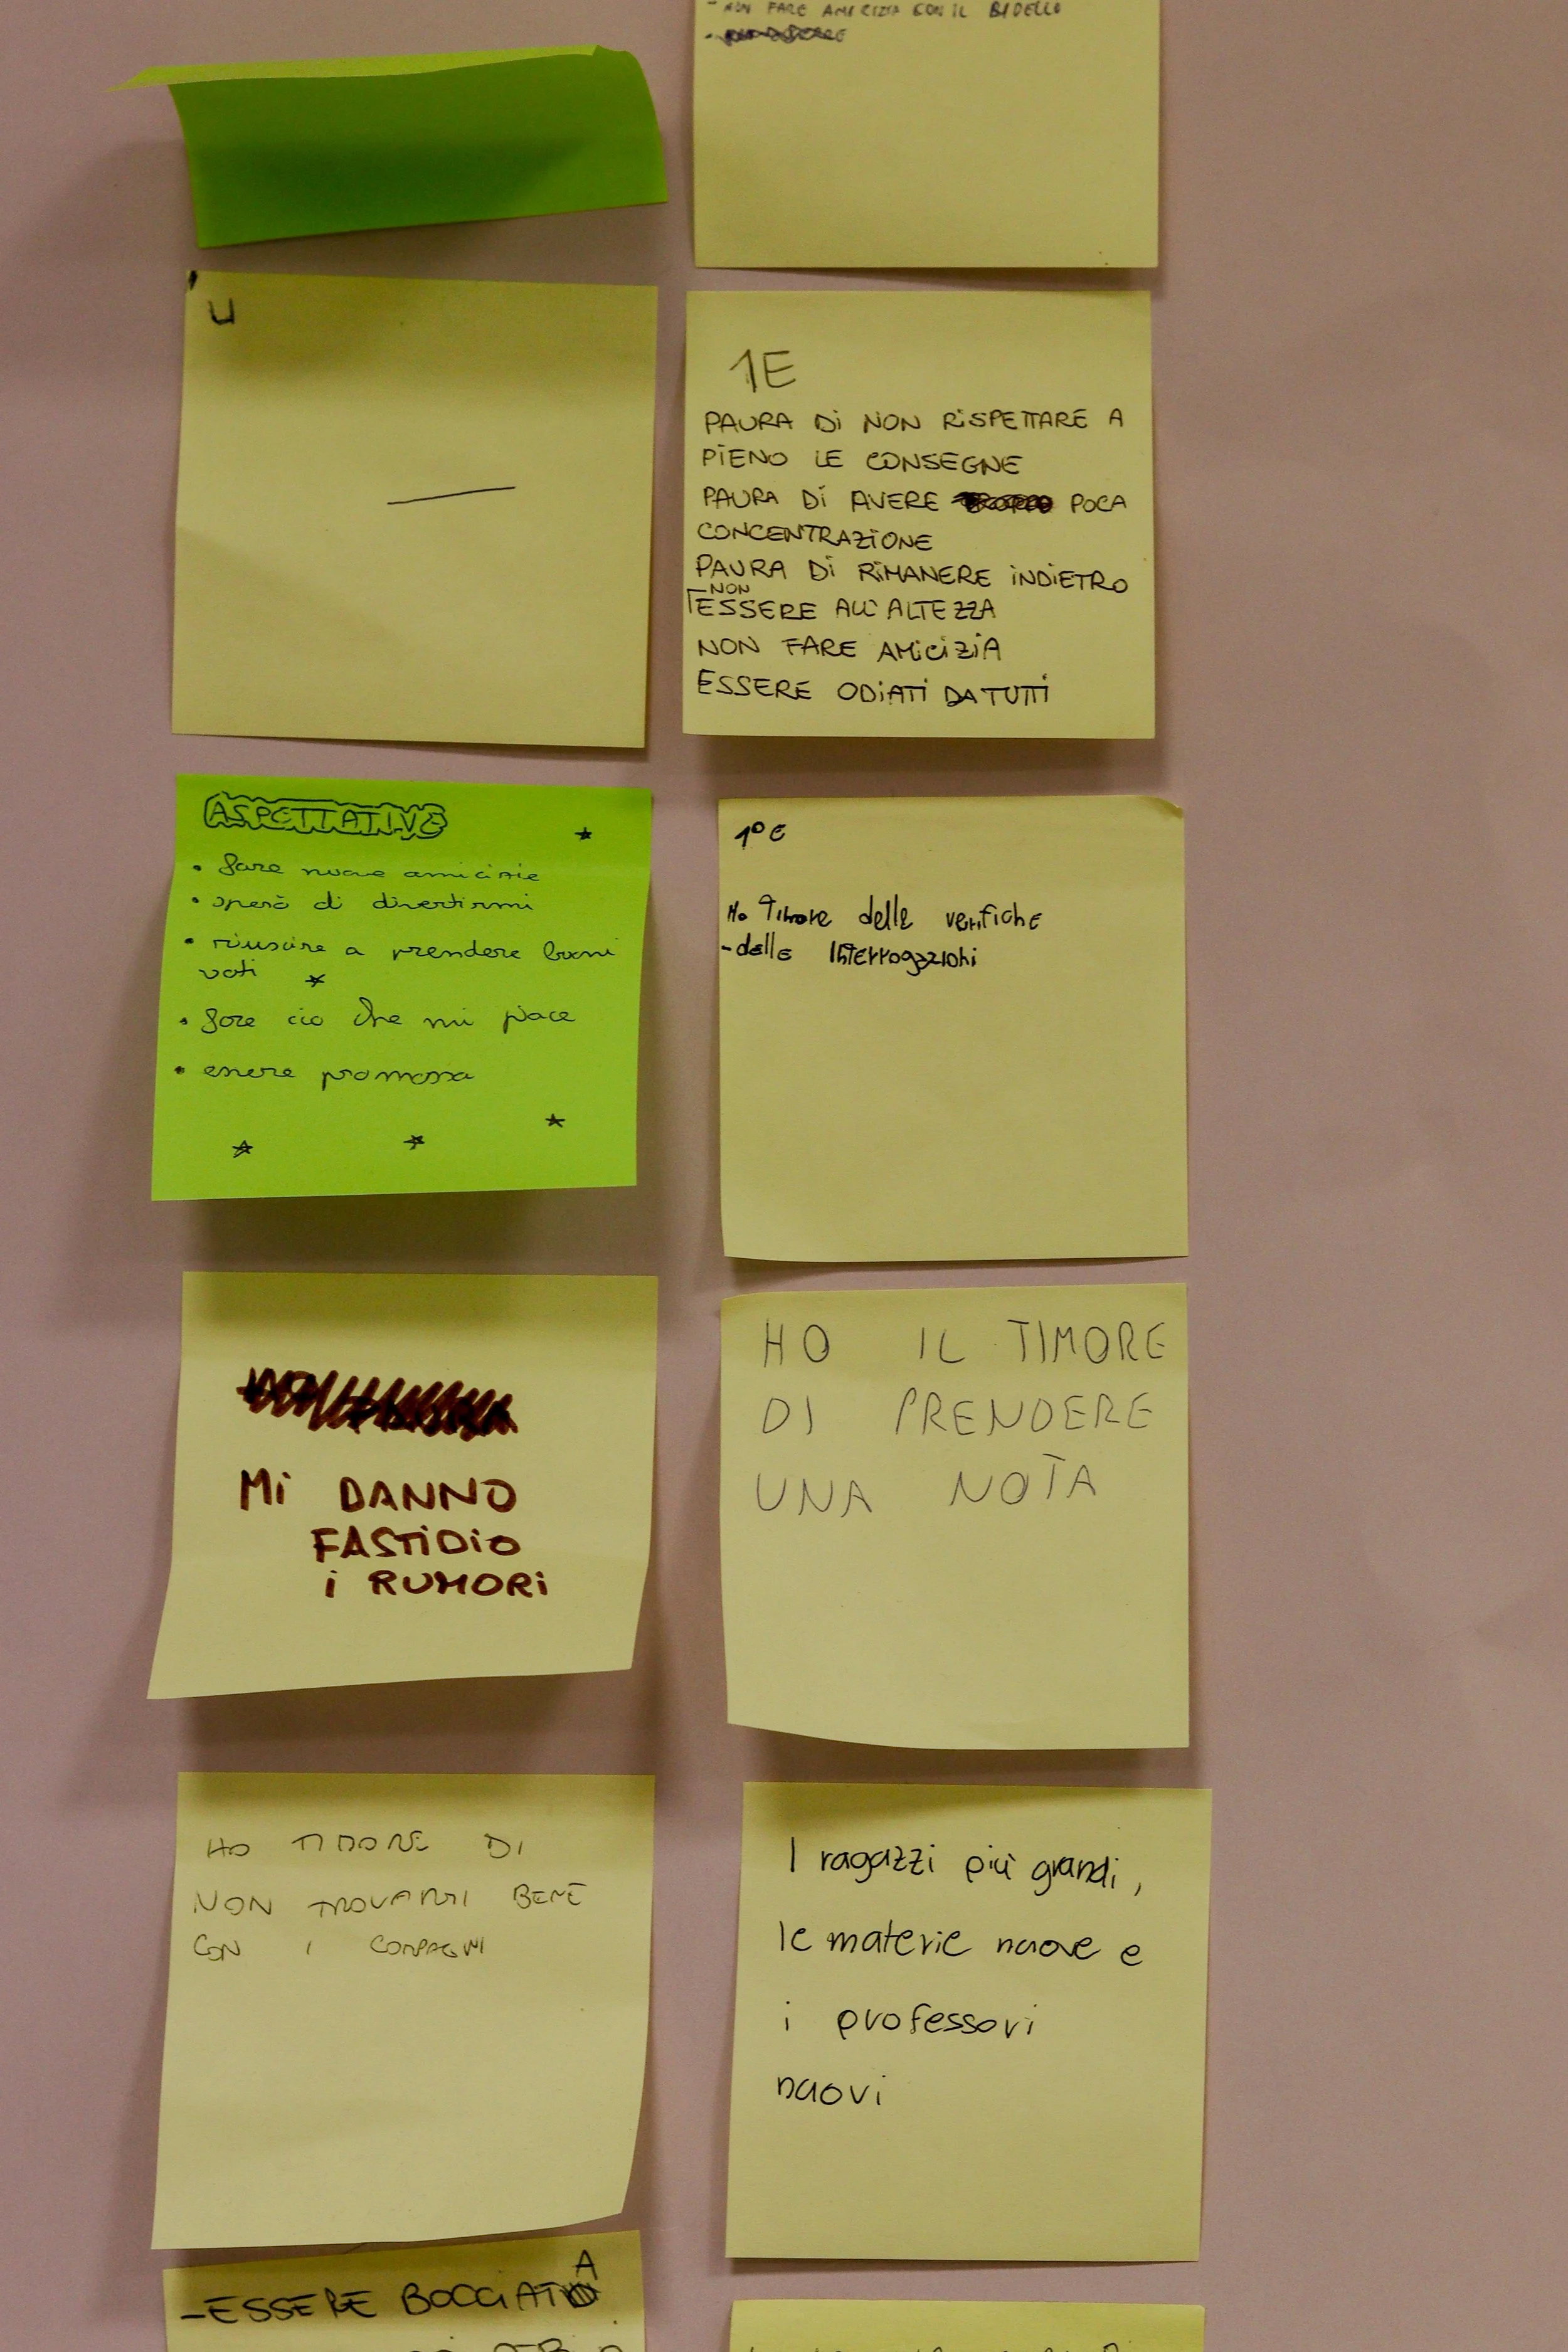 - NON FARE AMICIZIA CON IL BIDELLO
U
1E
PAURA Di NON RiSPETTARE A
PiENO LE CONSEGNE
PAURA Di AVERE POCA
CONCENTRAZiONE
PAURA Di RiMANERE iNDiETRO
NON
ESSERE ALL'ALTEZZA
NON FARE AMiCiZiA
ESSERE ODiATi DA TUTTi
ASPETTATIVE
• fare nuove amicizie
• spero di divertirmi
• riuscire a prendere buoni
voti
• fare ciò che mi piace
• essere promossa
1° E
Ho Timore delle verifiche
- delle Interrogazioni
Mi DANNO
FASTiDiO
i RUMORi
HO IL TIMORE
DI PRENDERE
UNA NOTA
HO TIMORE DI
NON TROVARMI BENE
CON I COMPAGNI
I ragazzi più grandi,
le materie nuove e
i professori
nuovi
- ESSERE BOCCIATA